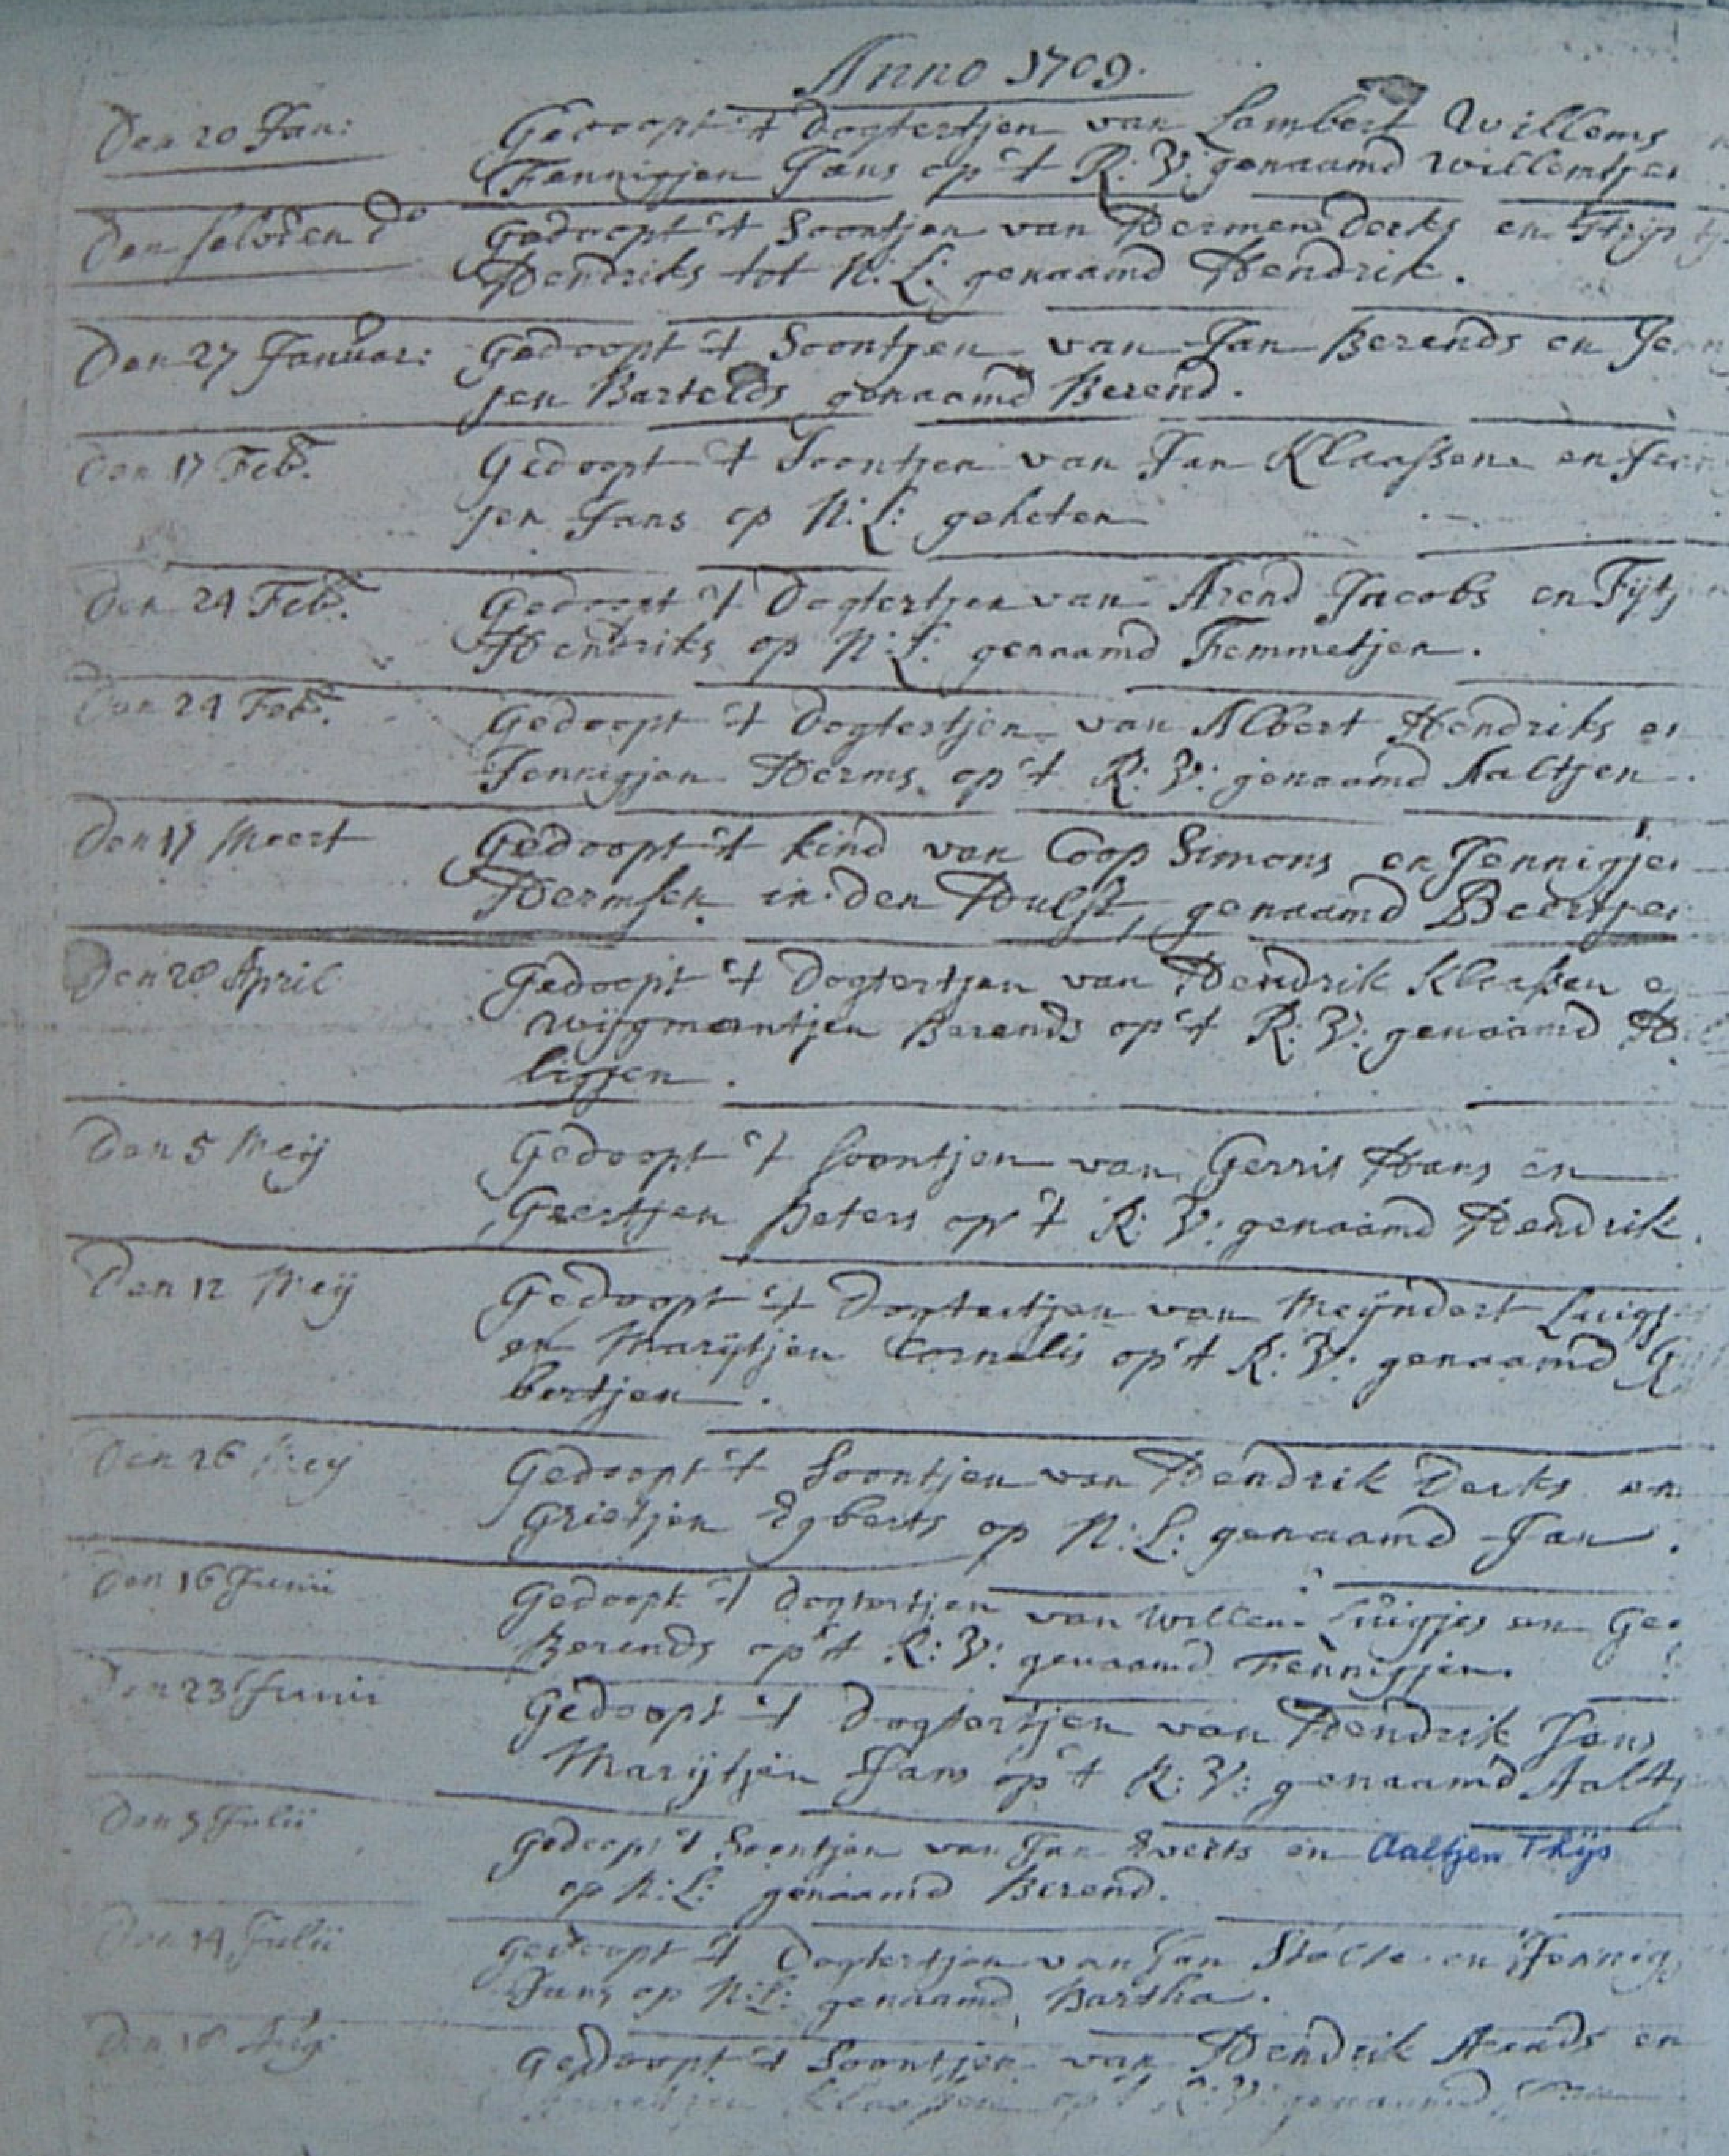 Anno 1709.
Den 20 Jan: Gedoopt 't Dogtertjen van Lambert Willems
Fennigjen Jans op 't R: V: genaamd Willemtjen
Den selvden do Gedoopt 't Soontjen van Hermen Derks en Strijn
Hendriks tot N: L: genaamd Hendrik.
Den 27 Januar: Gedoopt 't Soontjen van Jan Berends en Jen
jen Bartelds genaamd Berend.
Den 17 Feb. Gedoopt 't Soontjen van Jan Klaassen en Jen
jen Jans op N: L: geheten
Den 24 Feb. Gedoopt 't Dogtertjen van Arend Jacobs en Fijtj
Hendriks op N: L: genaamd Femmetjen.
Den 24 Feb. Gedoopt 't Dogtertjen van Albert Hendriks en
Jennigjen Herms op 't R: V: genaamd Aaltjen.
Den 17 Meert Gedoopt 't kind van Coop Simons en Jennigjen
Hermsen in den Hulst, genaamd Beertjen
Den 28 April Gedoopt 't Dogtertjen van Hendrik Klaassen e
Wijgmantjen Barends op 't R: V: genaamd H
ligjen.
Den 5 Meij Gedoopt 't soontjen van Gerrit Hans en
Geertjen Peters op 't R: V: genaamd Hendrik.
Den 12 Meij Gedoopt 't Dogtertjen van Meijndert Luigj
en Marijtjen Cornelis op 't R: V: genaamd G
bertjen.
Den 26 Meij Gedoopt 't Soontjen van Hendrik Derks en
Grietjen Egberts op N: L: genaamd Jan.
Den 16 Junii Gedoopt 't dogtertjen van Willem Luigjes en Ge
Berends op 't R: V: genaamd Fennigjen.
Den 23 Junii Gedoopt 't Dogtertjen van Hendrik Jans
Marijtjen Jans op 't R: V: genaamd Aaltj
Den Julii Gedoopt 't Soontjen van Jan Everts en Aaltjen Thijs
op N: L: genaamd Berend.
Den 14 Julii Gedoopt 't Dogtertjen van Jan Stolte en Jennig
Jans op N: L: genaamd Bartha.
Den 18 Aug Gedoopt 't Soontjen van Hendrik Arends en
Klaassen op 't R: V: genaamd